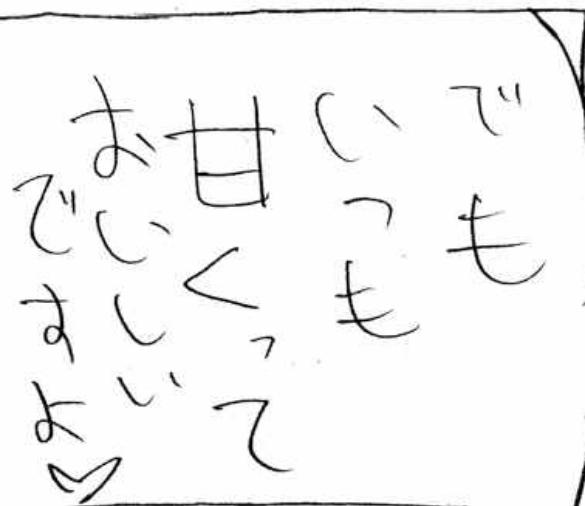 でも
いつも
甘くって
おいしい
ですよ♡